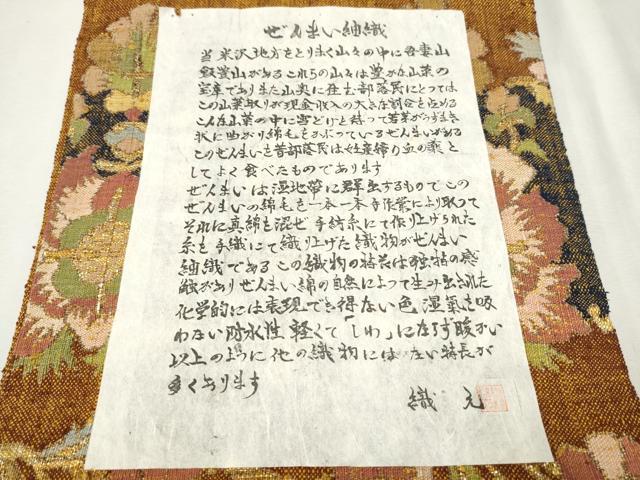 ぜんまい紬織
当米沢地方をとりまく山々の中に吾妻山
飯豊山があるこれらの山々は豊かな山菜の
宝庫でありまた山奥に住む部落民にとっては
この山菜取りが現金収入の大きな割合を占める
こんな山菜の中に雪どけと共って若芽がうずまき
状に曲がり綿毛をかぶっているぜんまいがある
このぜんまいを昔部落民は妊産婦り血の薬と
してよく食べたものであります
ぜんまいは湿地帯に群生するものでこの
ぜんまいの綿毛を一本一本手作業により取って
それに真綿を混ぜ手紡糸にて作り上げられた
糸を手織にて織り上げた織物がぜんまい
紬織であるこの織物の特長は独特の感
触がありぜんまい綿の自然によって生み出された
化学的には表現でき得ない色湿氣を吸
わない防水性軽くて「しわ」にならず暖かい
以上のように他の織物にはない特長が
多くあります
織元